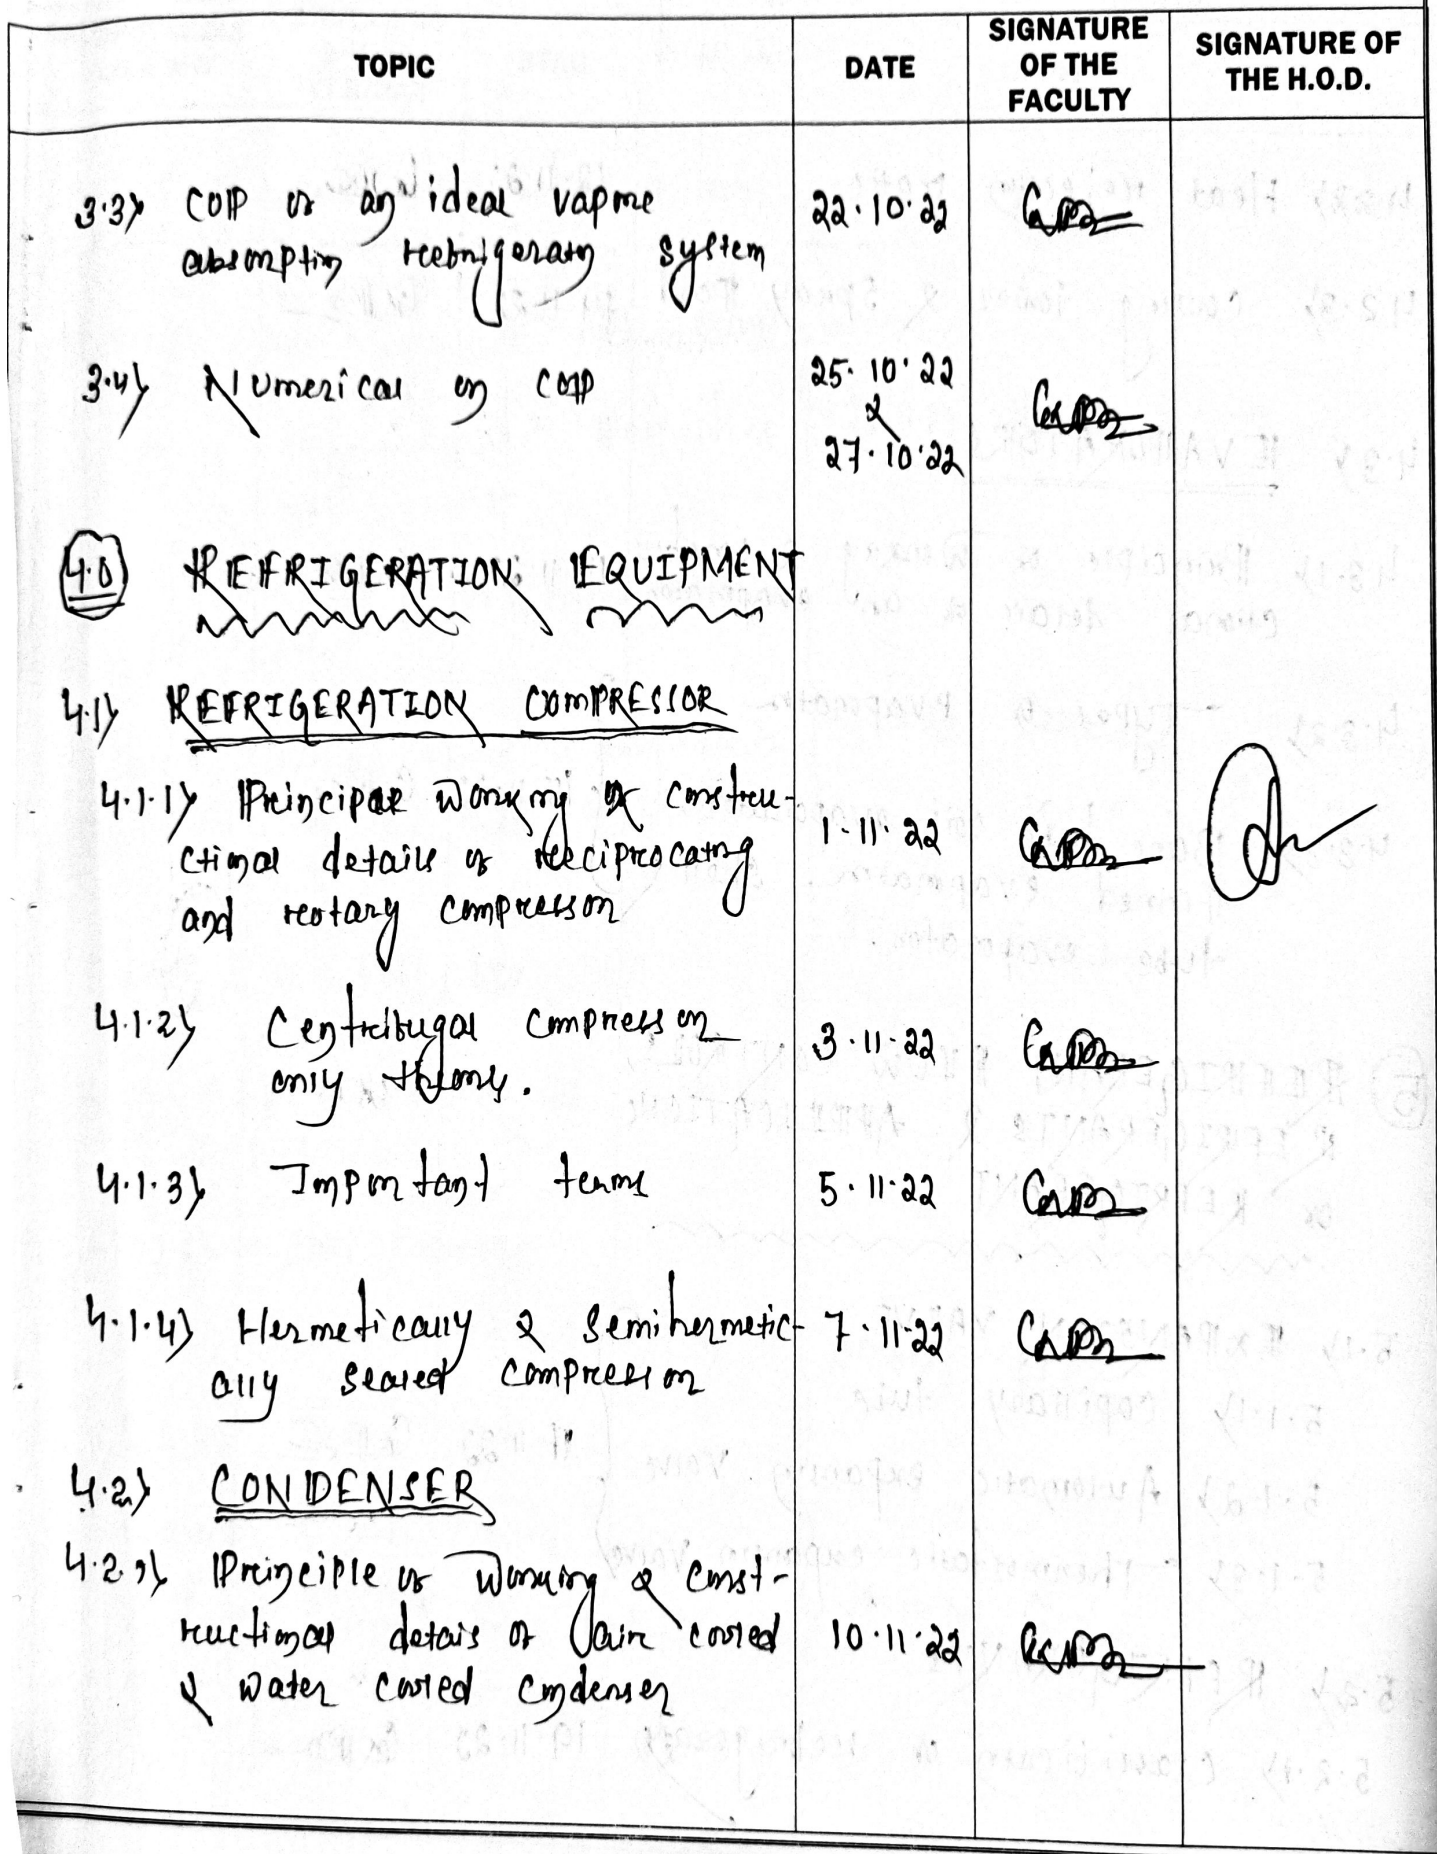 TOPIC
DATE
SIGNATURE
OF THE
FACULTY
SIGNATURE OF
THE H.O.D.
3.3) COP of an ideal vapour 22.10.22
absorption refrigeration system
3.4) Numerical on COP 25.10.22
&
27.10.22
4.0 REFRIGERATION EQUIPMENT
4.1) REFRIGERATION COMPRESSOR
4.1.1) Principle working & constru-
ctional details of reciprocating 1.11.22
and rotary compressor
4.1.2) Centrifugal compressor 3.11.22
only theory.
4.1.3) Important terms 5.11.22
4.1.4) Hermetically & semihermetic- 7.11.22
ally sealed compressor
4.2) CONDENSER
4.2.1) Principle of working & const-
ructional details of air cooled 10.11.22
& water cooled condenser